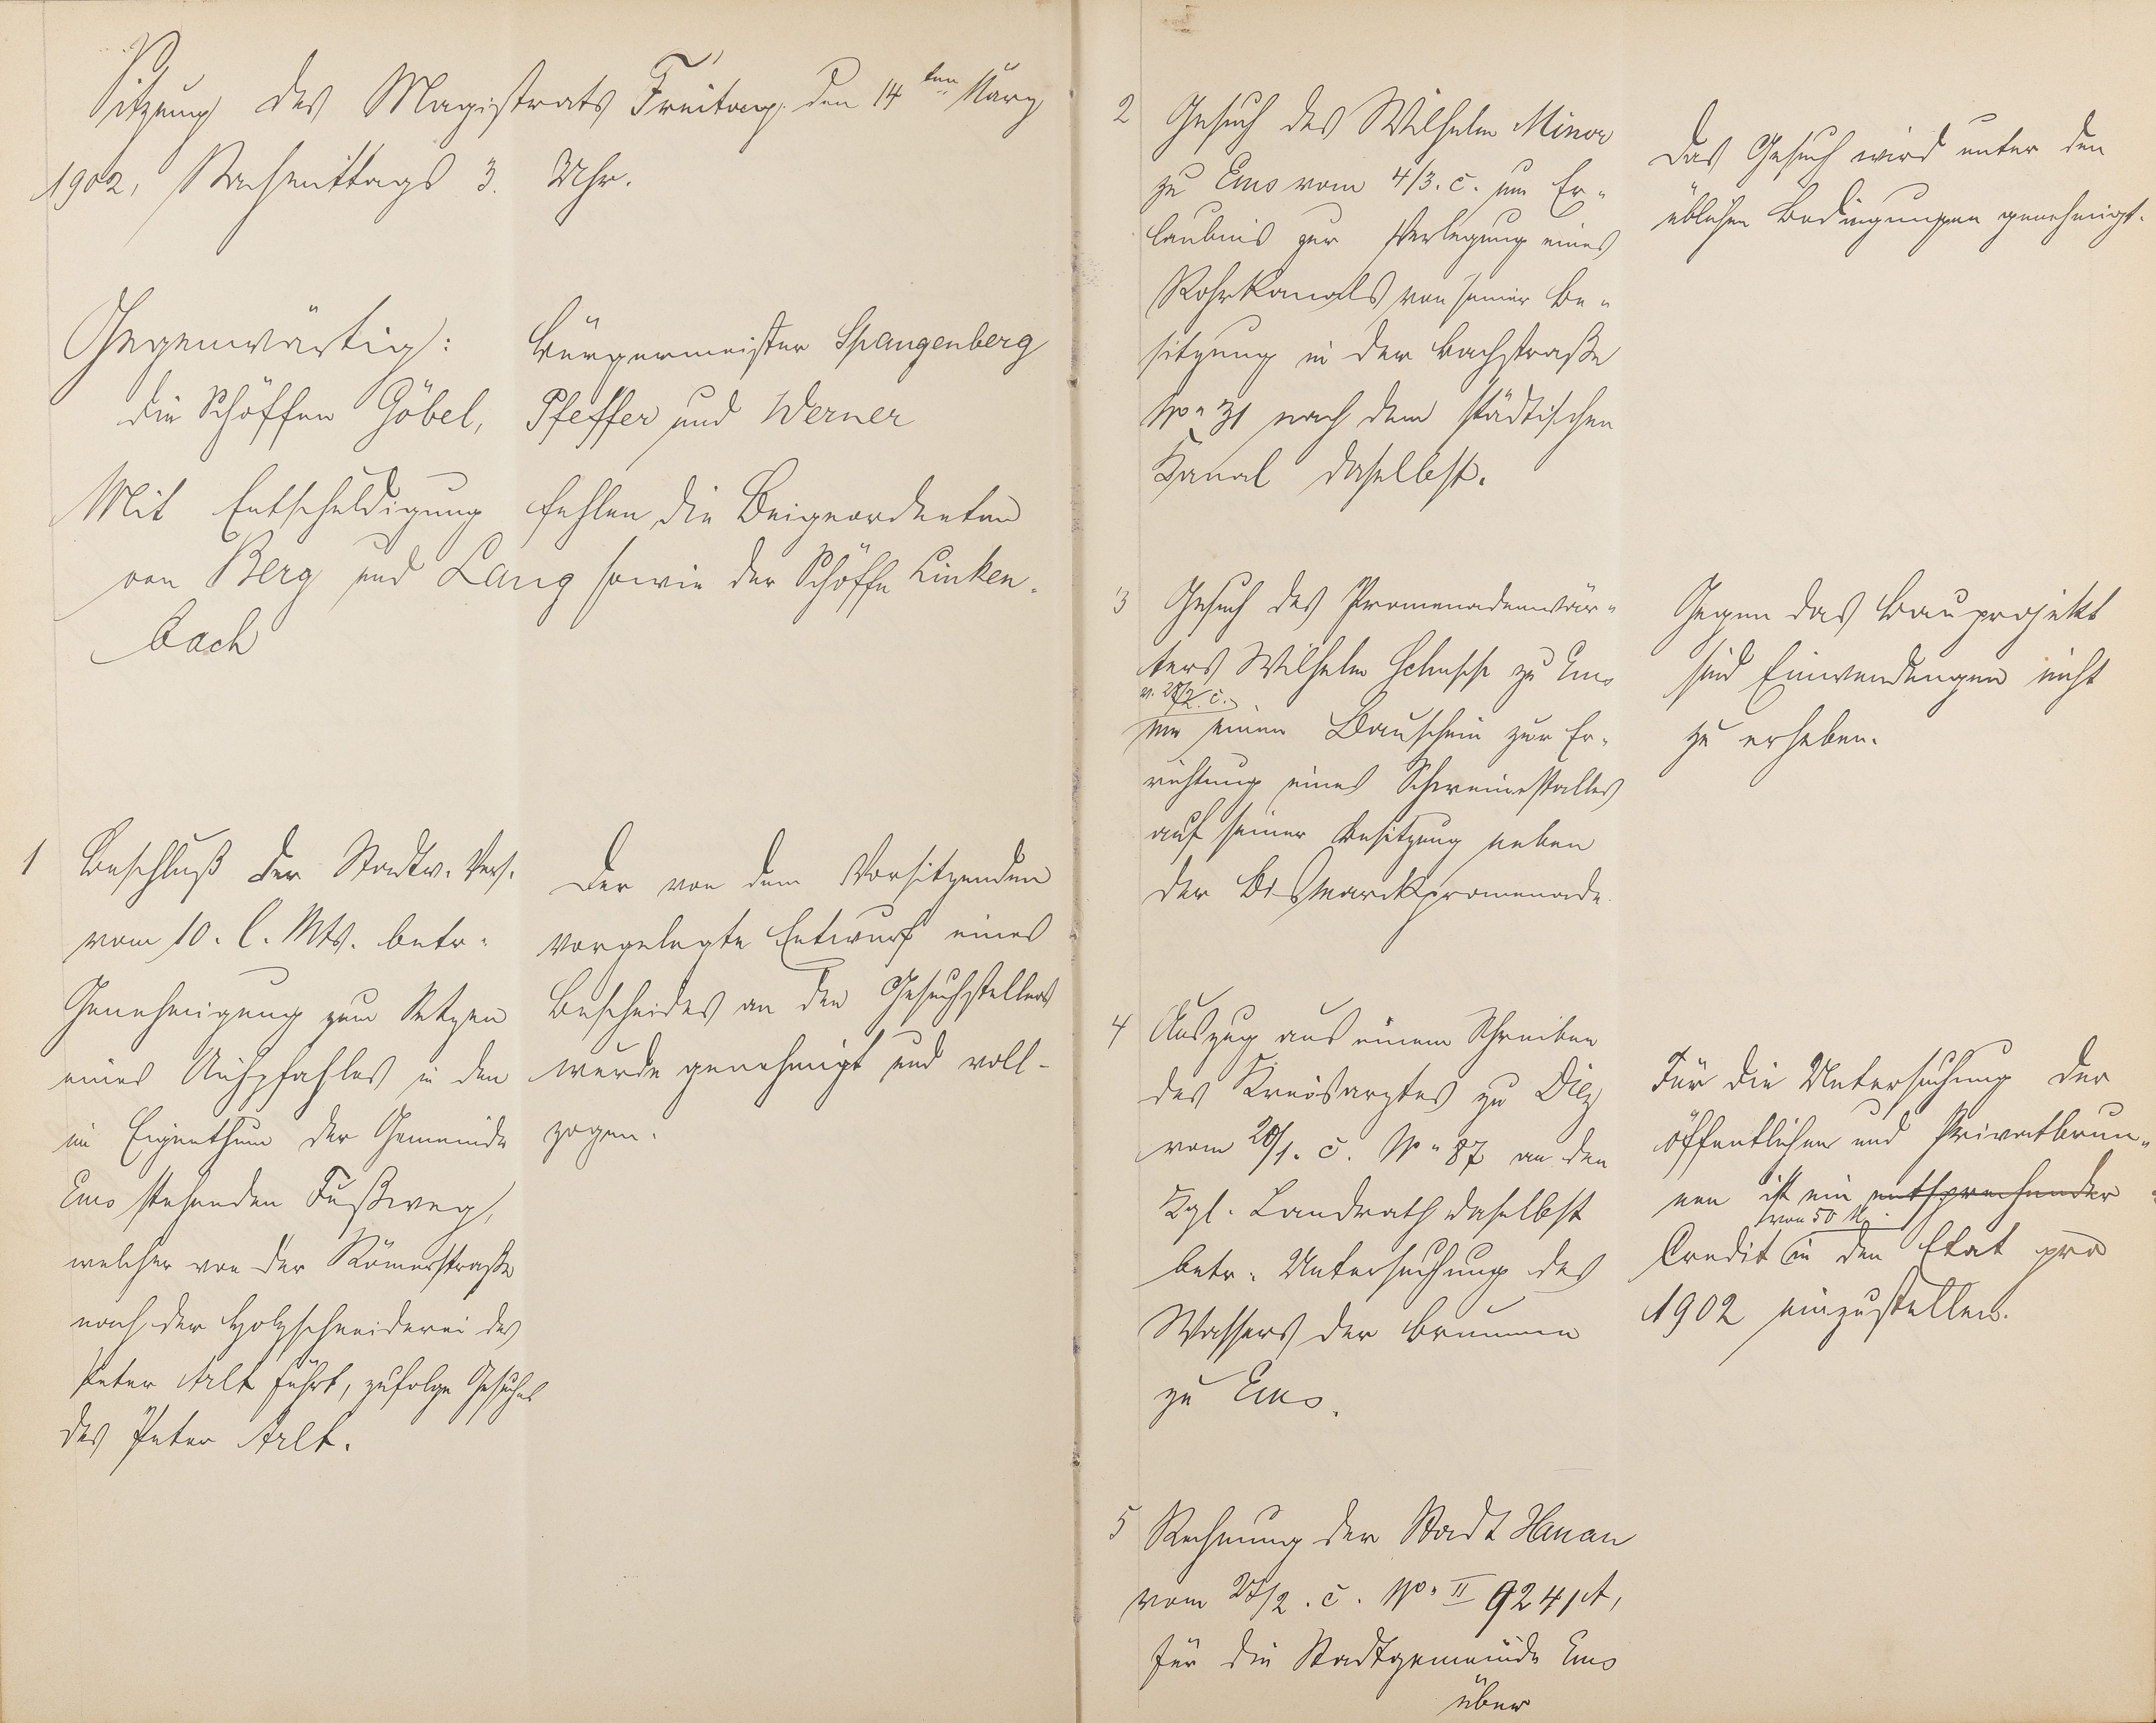 Sitzung des Magistrats Freitag, den 14ten März
1902, Nachmittags 3. Uhr.
Gegenwärtig: Bürgermeister Spangenberg
die Schöffen Göbel, Pfeffer und Werner
Mit Entschuldigung fehlen die Beigeordneten
von Berg und Lang sowie der Schöffe Linken-
bach
1 Beschluß der Stadtv. Vers.
vom 10. l. Mts. betr.
Genehmigung zum Setzen
eines Aichpfahles in den
im Eigenthum der Gemeinde
Ems stehenden Fußweg,
welcher von der Römerstraße
nach der Holzschneiderei des
Peter Arlt führt, zufolge Gesuches
des Peter Arlt.
Der von dem Vorsitzenden
vorgelegte Entwurf eines
Bescheides an den Gesuchstellers
wurde genehmigt und voll-
zogen.
2 Gesuch des Wilhelm Minor
zu Ems vom 4/3. c. um Er-
laubnis zur Verlegung eines
Rohrkanals von seiner Be-
sitzung in der Bachstraße
No 31 nach dem städtischen
Kanal daselbst.
Das Gesuch wird unter den
üblichen Bedingungen genehmigt.
3 Gesuch des Promenadenwär-
ters Wilhelm zu Ems
um einen Bauschein zur Er-
richtung eines Schweinestalles
auf seiner Besitzung neben
der Bismarckpromenade.
Gegen das Bauprojekt
sind Einwendungen nicht
zu erheben.
4 Auszug aus einem Schreiben
des Kreisarztes zu Diez
vom 20/1. c. No 87 an den
Kgl. Landrath daselbst
betr. Untersuchung des
Wassers der Brunnen
zu Ems.
Für die Untersuchung der
öffentlichen und Privatbrun-
nen ist ein entsprechender
von 50 M.
Credit in den Etat pro
1902 einzustellen.
5 Rechnung der Stadt Hanau
vom /2. c. No II 9241 A,
für die Stadtgemeinde Ems
über